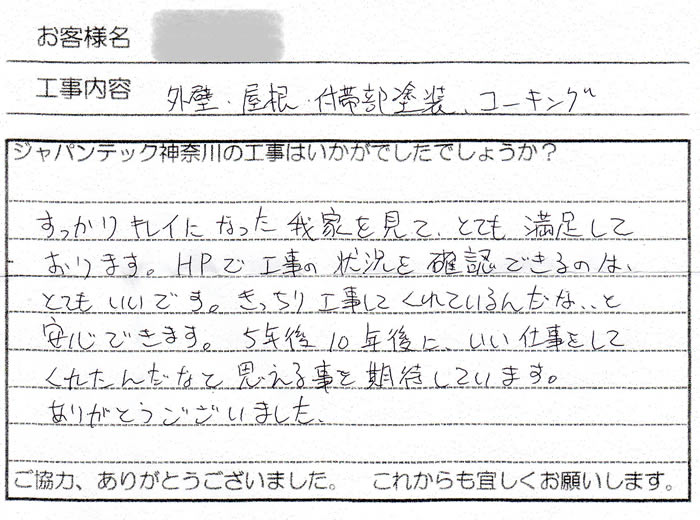 お客様名
工事内容 外壁・屋根・付帯部塗装、コーキング
ジャパンテック神奈川の工事はいかがでしたでしょうか？
すっかりキレイになった我家を見て、とても満足して
おります。HPで工事の状況を確認できるのは、
とてもいいです。きっちり工事してくれているんだな、、と
安心できます。5年後10年後に、いい仕事をして
くれたんだなと思える事を期待しています。
ありがとうございました、
ご協力、ありがとうございました。 これからも宜しくお願いします。